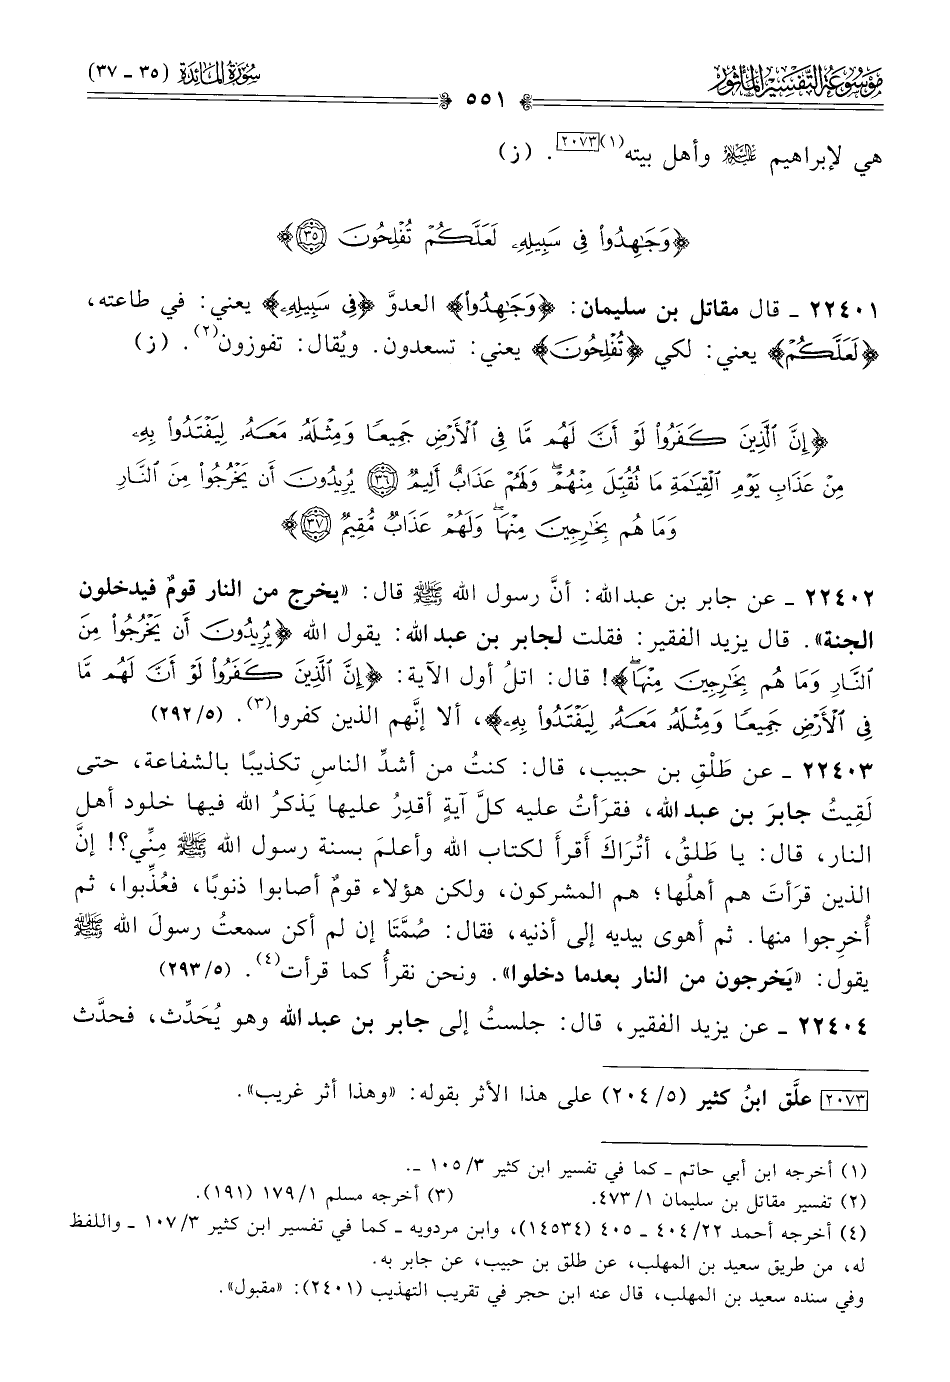 مَوْسُوعَة التَّفْسِير المَأثُور
٥٥١
سُورَةُ المَائِدَة (٣٥ - ٣٧)
هي لإبراهيم عليه السلام وأهل بيته(١)[٢٠٧٣]. (ز)
﴿وَجَٰهِدُوا۟ فِى سَبِيلِهِۦ لَعَلَّكُمْ تُفْلِحُونَ ٣٥﴾
٢٢٤٠١ - قال مقاتل بن سليمان: ﴿وَجَٰهِدُوا۟﴾ العدوَّ ﴿فِى سَبِيلِهِۦ﴾ يعني: في طاعته،
﴿لَعَلَّكُمْ﴾ يعني: لكي ﴿تُفْلِحُونَ﴾ يعني: تسعدون. ويُقال: تفوزون(٢). (ز)
﴿إِنَّ ٱلَّذِينَ كَفَرُوا۟ لَوْ أَنَّ لَهُم مَّا فِى ٱلْأَرْضِ جَمِيعًا وَمِثْلَهُۥ مَعَهُۥ لِيَفْتَدُوا۟ بِهِۦ
مِنْ عَذَابِ يَوْمِ ٱلْقِيَٰمَةِ مَا تُقُبِّلَ مِنْهُمْ ۖ وَلَهُمْ عَذَابٌ أَلِيمٌ ٣٦ يُرِيدُونَ أَن يَخْرُجُوا۟ مِنَ ٱلنَّارِ
وَمَا هُم بِخَٰرِجِينَ مِنْهَا ۖ وَلَهُمْ عَذَابٌ مُّقِيمٌ ٣٧﴾
٢٢٤٠٢ - عن جابر بن عبد الله: أنَّ رسول الله ﷺ قال: «يخرج من النار قومٌ فيدخلون
الجنة». قال يزيد الفقير: فقلت لجابر بن عبد الله: يقول الله ﴿يُرِيدُونَ أَن يَخْرُجُوا۟ مِنَ
ٱلنَّارِ وَمَا هُم بِخَٰرِجِينَ مِنْهَا ۖ﴾! قال: اتلُ أول الآية: ﴿إِنَّ ٱلَّذِينَ كَفَرُوا۟ لَوْ أَنَّ لَهُم مَّا
فِى ٱلْأَرْضِ جَمِيعًا وَمِثْلَهُۥ مَعَهُۥ لِيَفْتَدُوا۟ بِهِۦ﴾، ألا إنَّهم الذين كفروا(٣). (٥/٢٩٢)
٢٢٤٠٣ - عن طَلْقِ بن حبيب، قال: كنتُ من أشدِّ الناسِ تكذيبًا بالشفاعة، حتى
لَقِيتُ جابرَ بن عبد الله، فقرَأتُ عليه كلَّ آيةٍ أقدِرُ عليها يَذكرُ الله فيها خلود أهل
النار، قال: يا طَلقُ، أتُرَاكَ أَقرأَ لكتاب الله وأعلمَ بسنة رسول الله ﷺ مِنِّي؟! إنَّ
الذين قرَأتَ هم أهلُها؛ هم المشركون، ولكن هؤلاء قومٌ أصابوا ذنوبًا، فعُذِّبوا، ثم
أُخرِجوا منها. ثم أهوى بيديه إلى أذنيه، فقال: صُمَّتَا إن لم أكن سمعتُ رسولَ الله ﷺ
يقول: «يَخرجون من النار بعدما دخلوا». ونحن نقرأُ كما قرأت(٤). (٥/٢٩٣)
٢٢٤٠٤ - عن يزيد الفقير، قال: جلستُ إلى جابر بن عبد الله وهو يُحَدِّث، فحدَّث
[٢٠٧٣] علَّق ابنُ كثير (٥/٢٠٤) على هذا الأثر بقوله: «وهذا أثر غريب».
(١) أخرجه ابن أبي حاتم - كما في تفسير ابن كثير ٣/١٠٥ -.
(٢) تفسير مقاتل بن سليمان ١/٤٧٣. (٣) أخرجه مسلم ١/١٧٩ (١٩١).
(٤) أخرجه أحمد ٢٢/٤٠٤ - ٤٠٥ (١٤٥٣٤)، وابن مردويه - كما في تفسير ابن كثير ٣/١٠٧ - واللفظ
له، من طريق سعيد بن المهلب، عن طلق بن حبيب، عن جابر به.
وفي سنده سعيد بن المهلب، قال عنه ابن حجر في تقريب التهذيب (٢٤٠١): «مقبول».